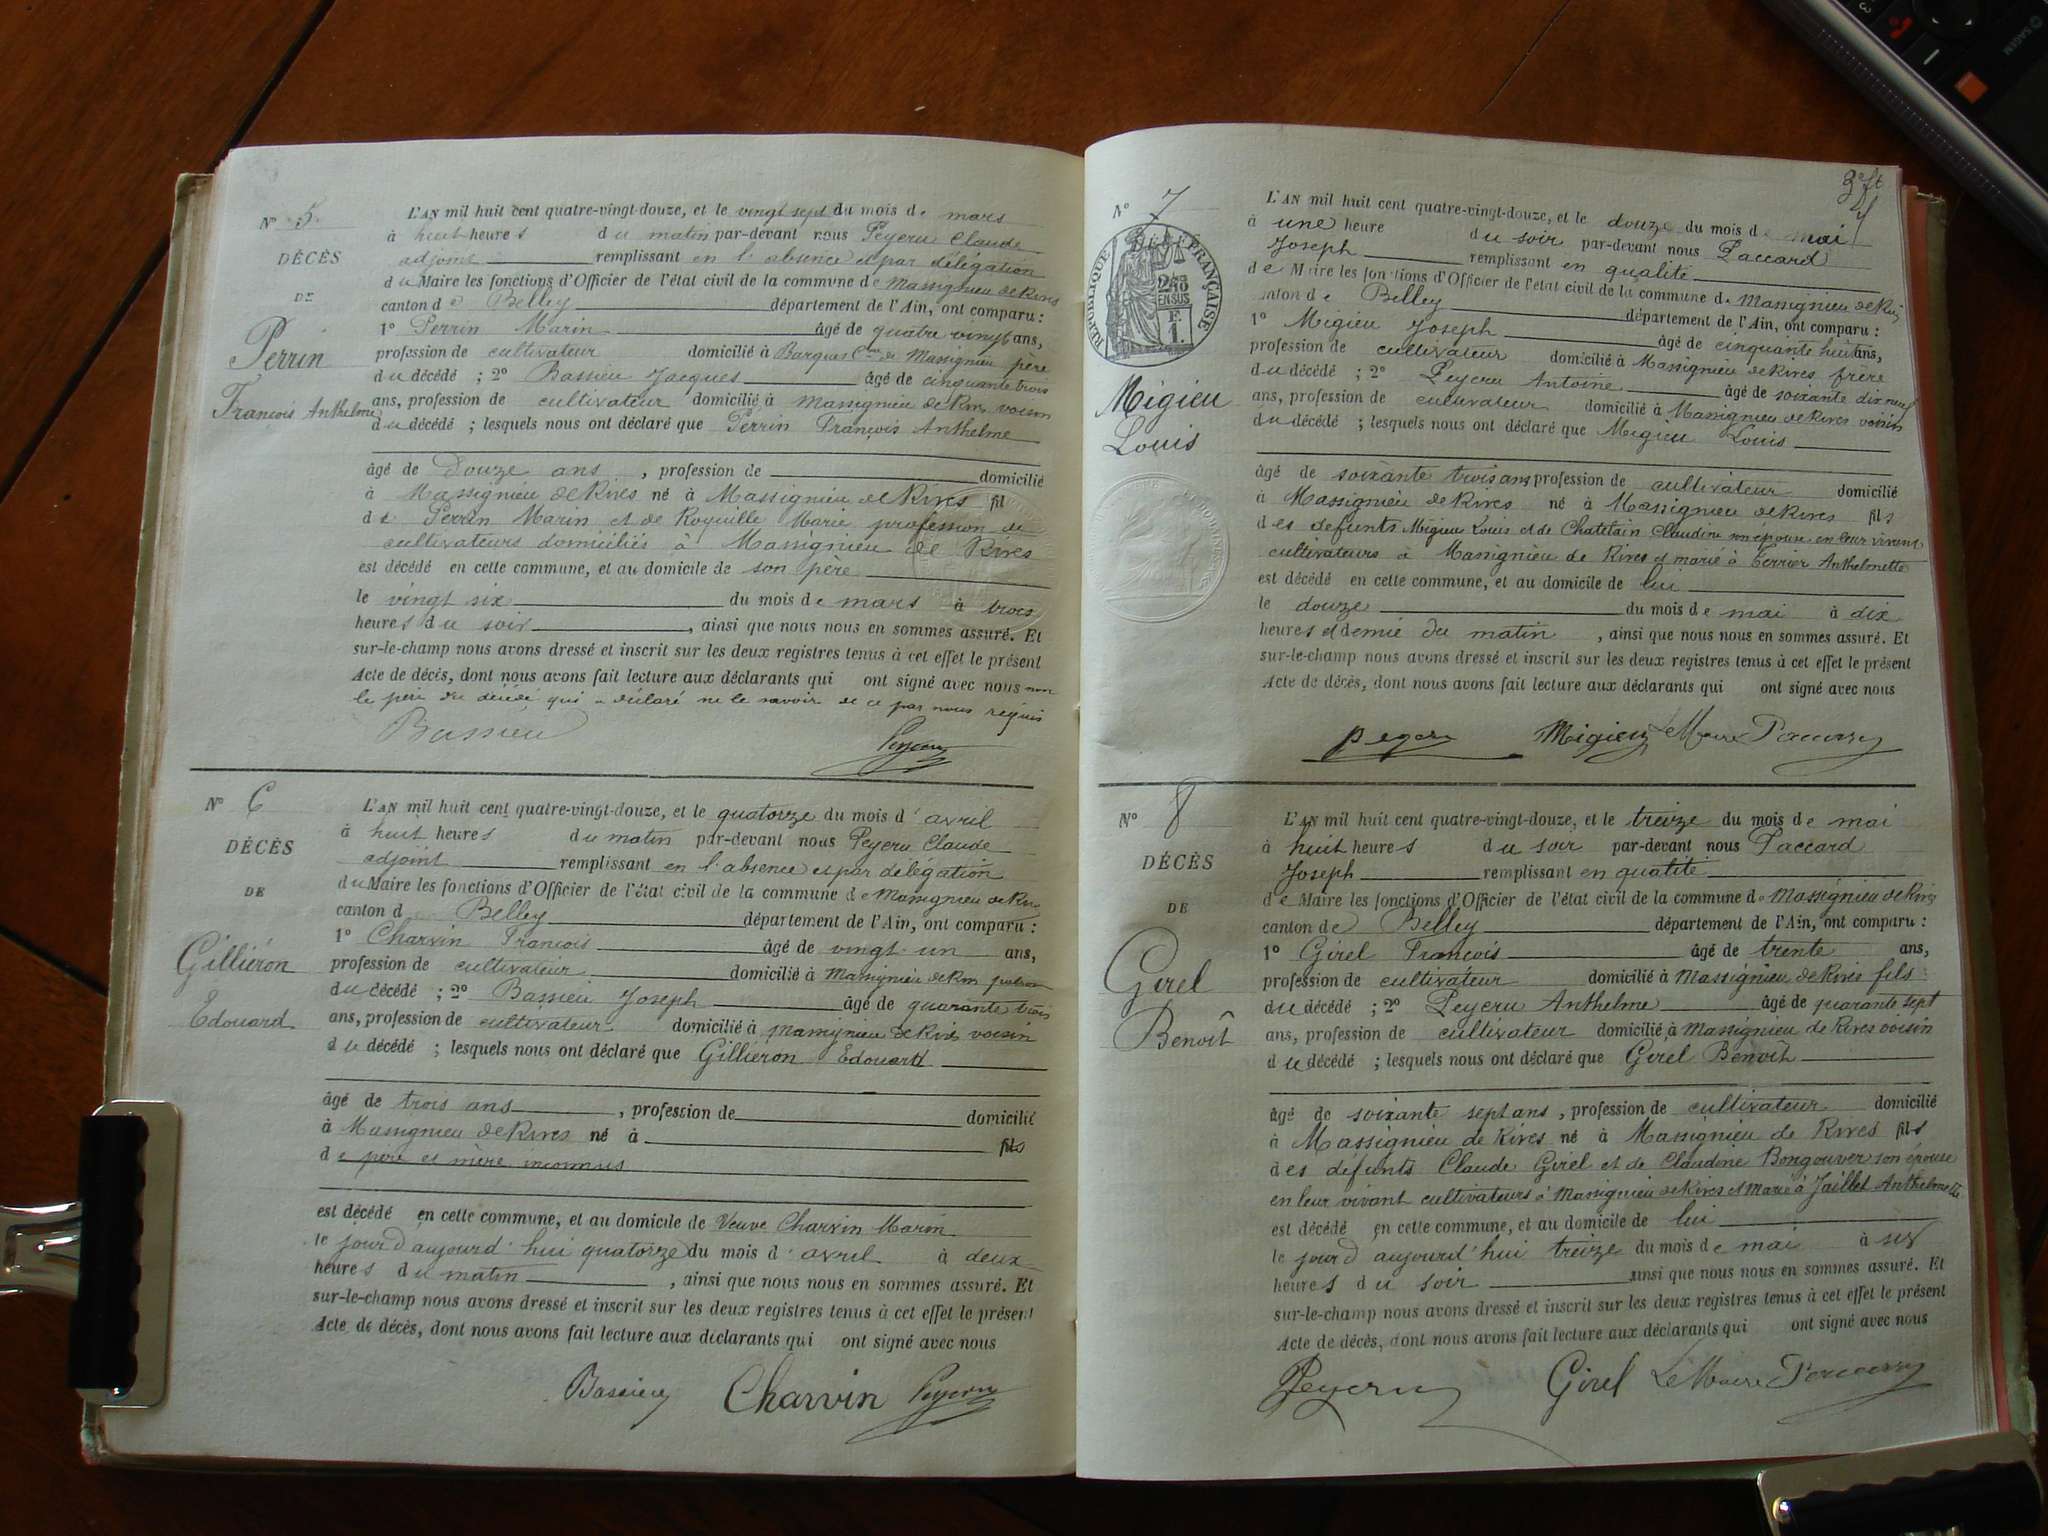 N° 5.
DÉCÈS
DE
Perrin
François Anthelme
L'AN mil huit cent quatre-vingt-douze, et le vingt sept du mois de mars
à huit heures du matin par-devant nous Peyeru Claude
adjoint remplissant en l'absence et par délégation
du Maire les fonctions d'Officier de l'état civil de la commune de Massignieu de Rives
canton de Belley département de l'Ain, ont comparu :
1° Perrin Marin âgé de quatre vingt ans,
profession de cultivateur domicilié à Barques Cne de Massignieu père
du décédé ; 2° Bassieu Jacques âgé de cinquante trois
ans, profession de cultivateur domicilié à Massignieu de Rives voisin
du décédé ; lesquels nous ont déclaré que Perrin François Anthelme
âgé de Douze ans , profession de domicilié
à Massignieu de Rives né à Massignieu de Rives fil
de Perrin Marin et de Marie profession de
cultivateurs domiciliés à Massignieu de Rives
est décédé en cette commune, et au domicile de son père
le vingt six du mois de mars à trois
heures du soir , ainsi que nous nous en sommes assuré. Et
sur-le-champ nous avons dressé et inscrit sur les deux registres tenus à cet effet le présent
Acte de décès, dont nous avons fait lecture aux déclarants qui ont signé avec nous non
le père du décédé qui a déclaré ne le savoir de ce par nous requis
Bassieu Peyeru
N° 6
DÉCÈS
DE
Gilliéron
Edouard
L'AN mil huit cent quatre-vingt-douze, et le quatorze du mois d'avril
à huit heures du matin par-devant nous Peyeru Claude
adjoint remplissant en l'absence et par délégation
du Maire les fonctions d'Officier de l'état civil de la commune de Massignieu de Rives
canton d Belley département de l'Ain, ont comparu :
1° Charvin François âgé de vingt un ans,
profession de cultivateur domicilié à Massignieu de Rives patron
du décédé ; 2° Bassieu Joseph âgé de quarante trois
ans, profession de cultivateur domicilié à Massignieu de Rives voisin
du décédé ; lesquels nous ont déclaré que Gilliéron Edouard
âgé de trois ans , profession de domicilié
à Massignieu de Rives né à fils
de père et mère inconnus
est décédé en cette commune, et au domicile de Veuve Charvin Marin
le jour d'aujourd'hui quatorze du mois d'avril à deux
heures du matin , ainsi que nous nous en sommes assuré. Et
sur-le-champ nous avons dressé et inscrit sur les deux registres tenus à cet effet le présent
Acte de décès, dont nous avons fait lecture aux déclarants qui ont signé avec nous
Bassieu Charvin Peyeru
N° 7
RÉPUBLIQUE FRANÇAISE
2/10 EN SUS
F. 1.
Migieu
Louis
L'AN mil huit cent quatre-vingt-douze, et le douze du mois de mai
à une heure du soir par-devant nous Paccard
Joseph remplissant en qualité
de Maire les fonctions d'Officier de l'état civil de la commune de Massignieu de Rives
canton de Belley département de l'Ain, ont comparu :
1° Migieu Joseph âgé de cinquante huit ans,
profession de cultivateur domicilié à Massignieu de Rives frère
du décédé ; 2° Peyeru Antoine âgé de soixante dix neuf
ans, profession de cultivateur domicilié à Massignieu de Rives voisin
du décédé ; lesquels nous ont déclaré que Migieu Louis
âgé de soixante trois ans profession de cultivateur domicilié
à Massignieu de Rives né à Massignieu de Rives fils
des défunts Migieu Louis et de Chatelain Claudine son épouse en leur vivant
cultivateurs à Massignieu de Rives et marié à Terrier Anthelmette
est décédé en cette commune, et au domicile de lui
le douze du mois de mai à dix
heures et demie du matin , ainsi que nous nous en sommes assuré. Et
sur-le-champ nous avons dressé et inscrit sur les deux registres tenus à cet effet le présent
Acte de décès, dont nous avons fait lecture aux déclarants qui ont signé avec nous
Peyeru Migieu Le Maire Paccard
N° 8
DÉCÈS
DE
Girel
Benoît
L'AN mil huit cent quatre-vingt-douze, et le treize du mois de mai
à huit heures du soir par-devant nous Paccard
Joseph remplissant en qualité
de Maire les fonctions d'Officier de l'état civil de la commune de Massignieu de Rives
canton de Belley département de l'Ain, ont comparu :
1° Girel François âgé de trente ans,
profession de cultivateur domicilié à Massignieu de Rives fils
du décédé ; 2° Peyeru Anthelme âgé de quarante sept
ans, profession de cultivateur domicilié à Massignieu de Rives voisin
du décédé ; lesquels nous ont déclaré que Girel Benoît
âgé de soixante sept ans , profession de cultivateur domicilié
à Massignieu de Rives né à Massignieu de Rives fils
des défunts Claude Girel et de Claudine Bongouver son épouse
en leur vivant cultivateurs à Massignieu de Rives et marié à Jaillet Anthelmette
est décédé en cette commune, et au domicile de lui
le jour d'aujourd'hui treize du mois de mai à six
heures du soir ainsi que nous nous en sommes assuré. Et
sur-le-champ nous avons dressé et inscrit sur les deux registres tenus à cet effet le présent
Acte de décès, dont nous avons fait lecture aux déclarants qui ont signé avec nous
Peyeru Girel Le Maire Paccard
SAGEM